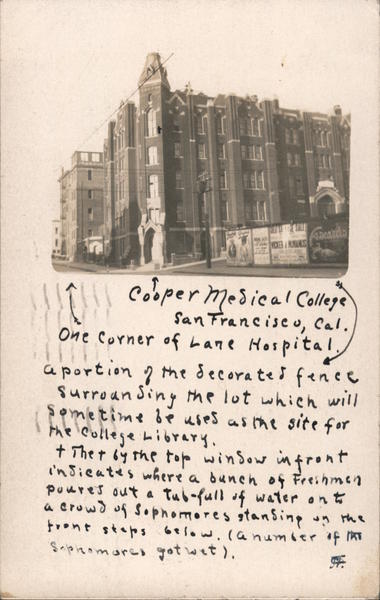 Cooper Medical College
San Francisco, Cal.
One Corner of Lane Hospital.
a portion of the decorated fence
surrounding the lot which will
sometime be used as the site for
the College Library.
+ Ther by the top window in front
indicates where a bunch of Freshmen
poured out a tub-full of water onto
a crowd of Sophomores standing on the
front steps below. (a number of the
Sophomores got wet).